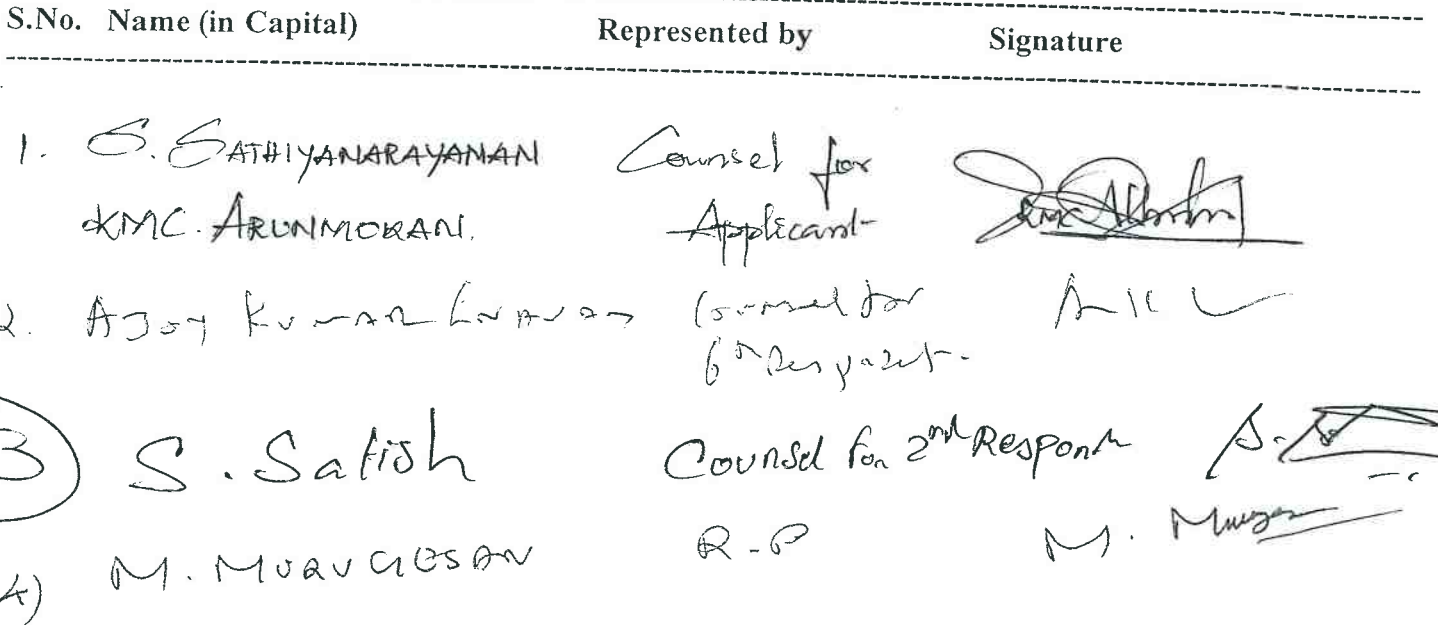 S.No. Name (in Capital) Represented by Signature
1. S. SATHIYANARAYANAN Counsel for
KMC. ARUNMOHAN. Applicant
2. AJOY KUMAR Counsel for
6th Respondent.
3 S. Satish Counsel for 2nd Respont S.
4) M. MURUGESAN R.P M. Muruges